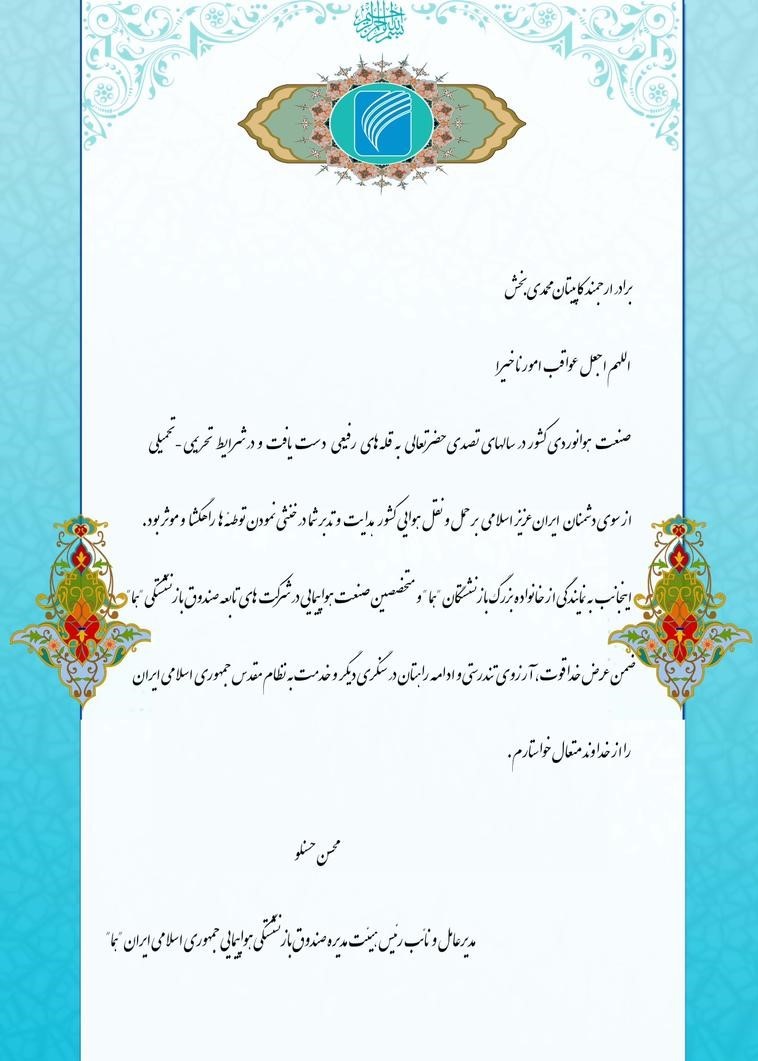 بسم الله الرحمن الرحیم
برادر ارجمند کاپیتان محمدی بخش
اللهم اجعل عواقب امورنا خیرا
صنعت هوانوردی کشور در سالهای تصدی حضرتعالی به قله های رفیعی دست یافت و در شرایط تحریمی - تحمیلی
از سوی دشمنان ایران عزیز اسلامی بر حمل و نقل هوایی کشور هدایت و تدبر شما در خنثی نمودن توطئه ها راهگشا و موثر بود.
اینجانب به نمایندگی از خانواده بزرگ بازنشستگان "هما" و متخصصین صنعت هواپیمایی در شرکت های تابعه صندوق بازنشستگی "هما"
ضمن عرض خداقوت، آرزوی تندرستی و ادامه راهتان در سنگری دیگر و خدمت به نظام مقدس جمهوری اسلامی ایران
را از خداوند متعال خواستارم.
محسن حسنلو
مدیرعامل و نائب رئیس هیئت مدیره صندوق بازنشستگی هواپیمایی جمهوری اسلامی ایران "هما"